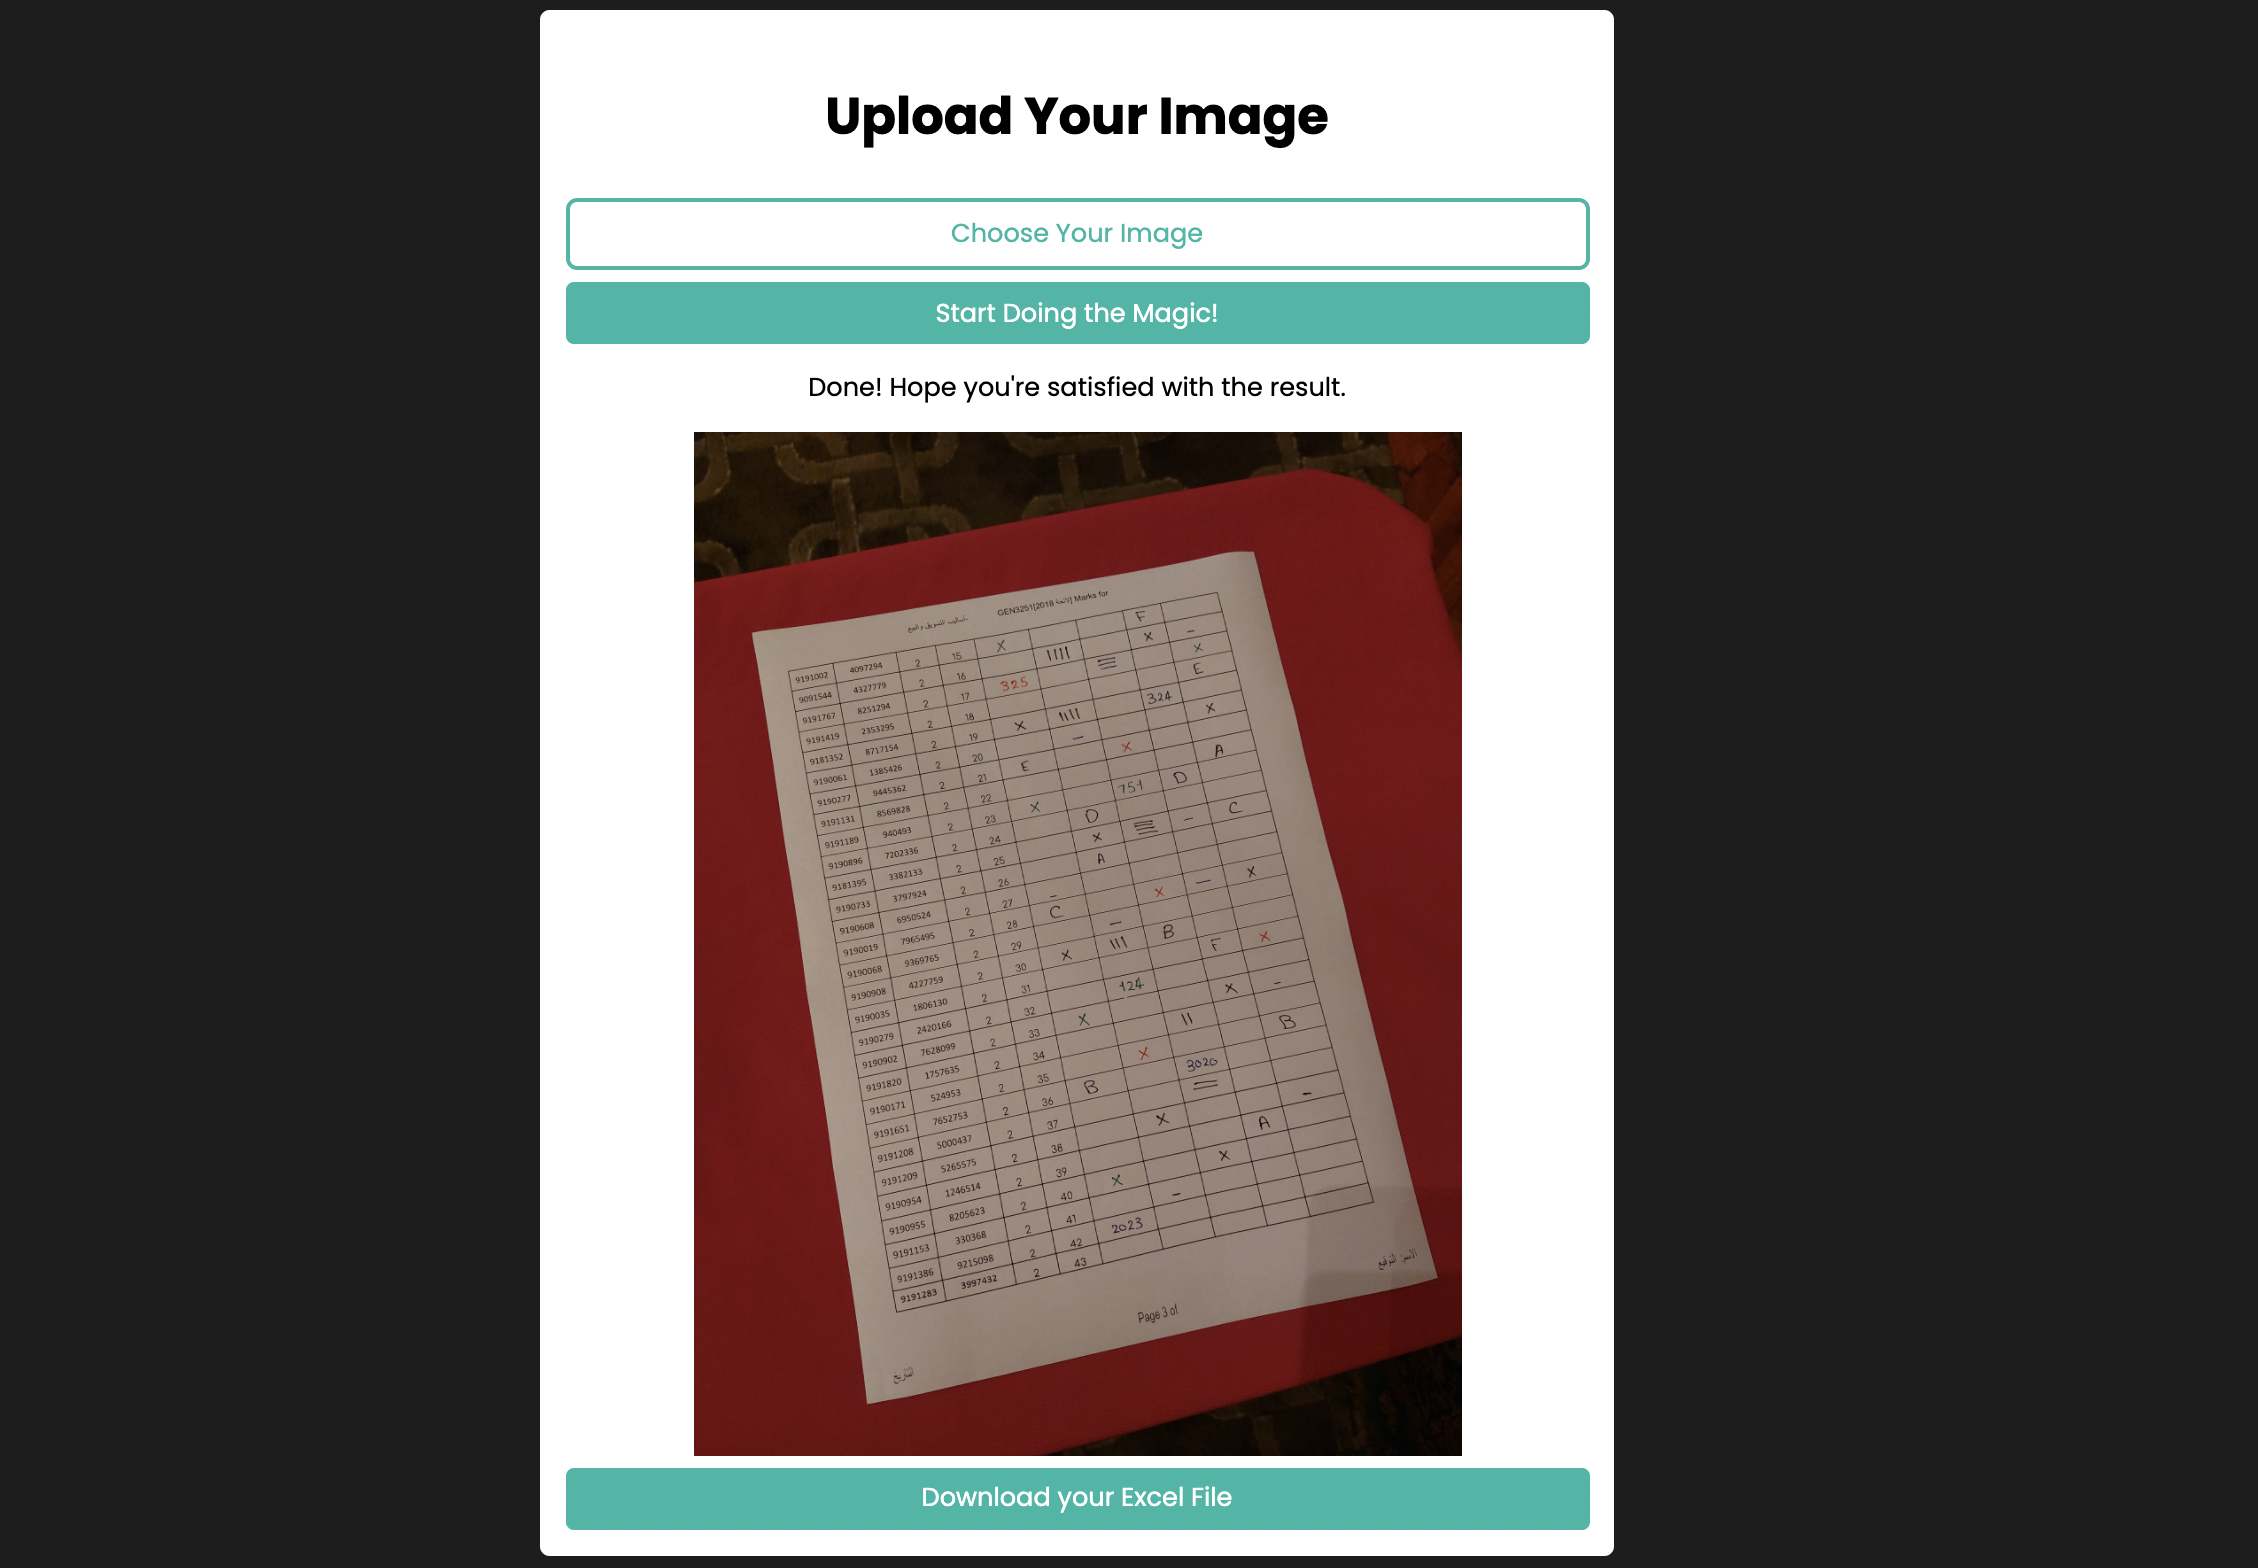 Upload Your Image
Choose Your Image
Start Doing the Magic!
Done! Hope you're satisfied with the result.
أساليب التسويق و البيع- GEN3251[2018 لائحة] Marks for
9191002 4097294 2 15 X F
9091544 4327779 2 16 |||| X -
9191767 8251294 2 17 325 ≡ X
9191419 2353295 2 18 E
9181352 8717154 2 19 X |||| 324
9190061 1385426 2 20 - X
9190277 9445362 2 21 E X
9191131 8569828 2 22 A
9191189 940493 2 23 X 751 D
9190896 7202336 2 24 D
9181395 3382133 2 25 X ≡ - C
9190733 3797924 2 26 A
9190608 6950524 2 27 -
9190019 7965495 2 28 C X - X
9190068 9369765 2 29 -
9190908 4227759 2 30 X ||| B
9190035 1806130 2 31 F X
9190279 2420166 2 32 124
9190902 7628099 2 33 X X -
9191820 1757635 2 34 ||
9190171 524953 2 35 X B
9191651 7652753 2 36 B 3020
9191208 5000437 2 37 =
9191209 5265575 2 38 X -
9190954 1246514 2 39 A
9190955 8205623 2 40 X X
9191153 330368 2 41 -
9191386 9215098 2 42 2023
9191283 3997432 2 43
الأسم: التوقيع
Page 3 of
التاريخ
Download your Excel File